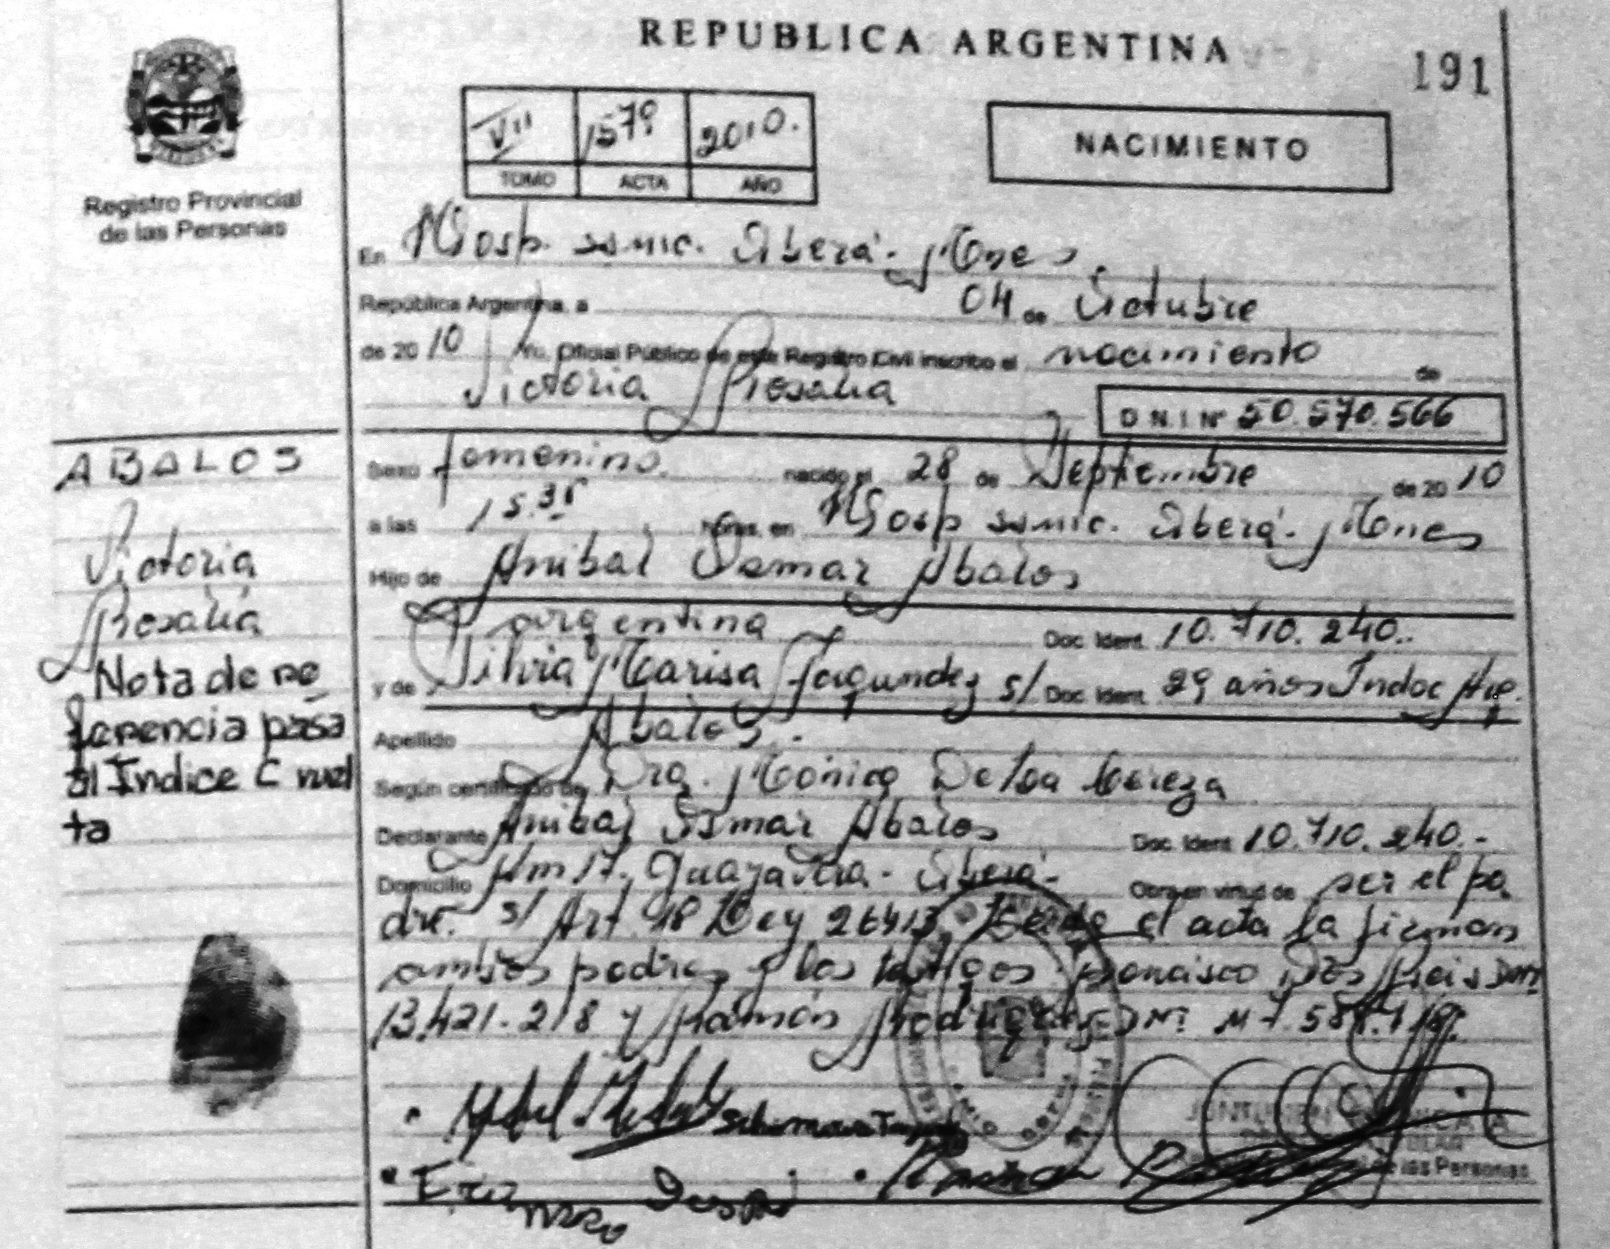 REPUBLICA ARGENTINA
191
VII 1579 2010.
TOMO ACTA AÑO
NACIMIENTO
Registro Provincial
de las Personas
En Hosp. samic. Oberá. Mones
República Argentina, a 04 de Octubre
de 2010 Yo, Oficial Público de este Registro Civil inscribo el nacimiento de
Victoria Rosalia
D.N.I Nº 50.570.566
ABALOS
Victoria
Rosalia
Nota de re
ferencia pasa
al Indice C vuel
ta
Sexo femenino. nacido el 28 de Septiembre de 2010
a las 15.35 horas, en Hosp samic. Oberá. Mones
Hijo de Anibal Osmar Abalos
argentina Doc. Ident. 10.710.240..
y de Silvia Marisa Fagundez s/ Doc. Ident. 29 años Indoc Arg.
Apellido Abalos.
Según certificado de Dra. Mónica De La
Declarante Anibal Osmar Abalos Doc. Ident. 10.710.240.-
Domicilio Km 17. Guayabera - Oberá- Obra en virtud de ser el pa
dre. s/ Art. 18 Ley 26413 el acta la firman
ambos padres y los testigos Francisco Dos Reis DNI
13.421.218 y Ramón Rodriguez DNI M 7.
de las Personas